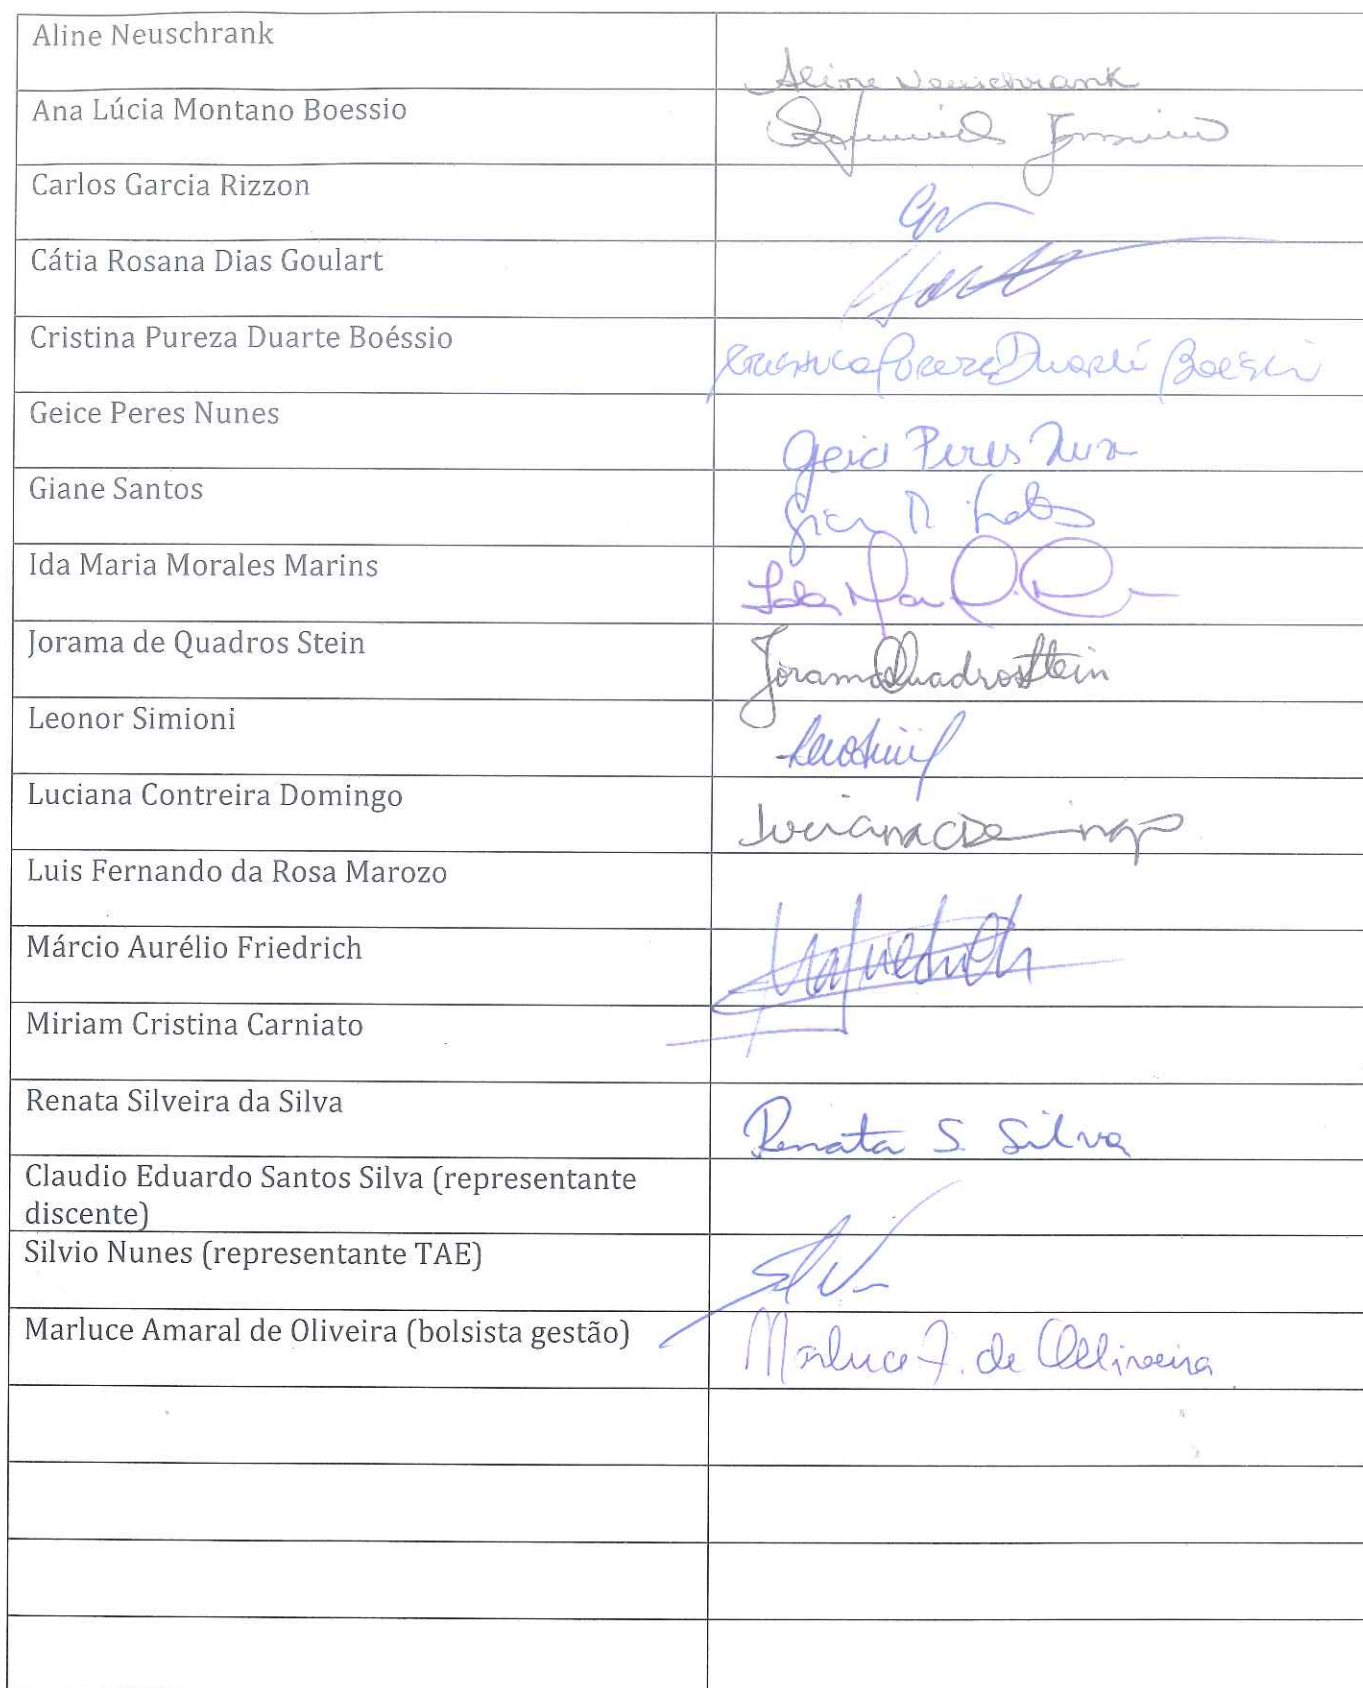 Aline Neuschrank
Aline Neuschrank
Ana Lúcia Montano Boessio
Carlos Garcia Rizzon
Cátia Rosana Dias Goulart
Cristina Pureza Duarte Boéssio
Cristina Pureza Duarte Boéssio
Geice Peres Nunes
Geice Peres Nunes
Giane Santos
Ida Maria Morales Marins
Jorama de Quadros Stein
Jorama Quadros Stein
Leonor Simioni
Luciana Contreira Domingo
Luis Fernando da Rosa Marozo
Márcio Aurélio Friedrich
Miriam Cristina Carniato
Renata Silveira da Silva
Renata S. Silva
Claudio Eduardo Santos Silva (representante
discente)
Silvio Nunes (representante TAE)
Marluce Amaral de Oliveira (bolsista gestão)
Marluce A. de Oliveira